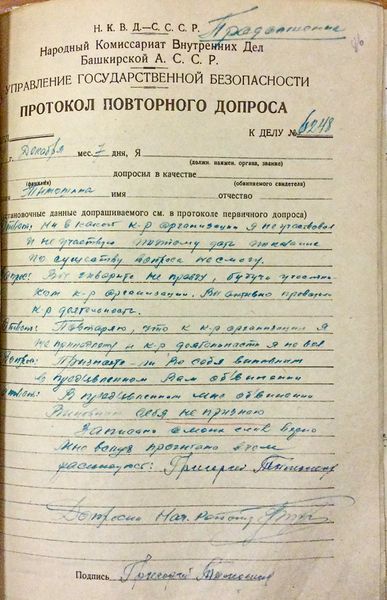 Н. К. В. Д.—С. С. С. Р. Продолжение
Народный Комиссариат Внутренних Дел
Башкирской А. С. С. Р.
УПРАВЛЕНИЕ ГОСУДАРСТВЕННОЙ БЕЗОПАСНОСТИ
ПРОТОКОЛ ПОВТОРНОГО ДОПРОСА
К ДЕЛУ № 6248
г. Декабря мес. 7 дня, Я
(должн. наимен. органа, звание)
допросил в качестве
(обвиняемого свидетеля)
имя отчество
становочные данные допрашиваемого см. в протоколе первичного допроса)
Ответ: Ни в какой к-р организации я не участвовал
и не участвую поэтому дать показание
по существу вопроса не смогу.
Вы говорите не правду, будучи участни
ком к-р организации. Вы активно проводили
к-р деятельность.
Повторяю, что к к-р организации я
не принадлежу и к-р деятельности я не вел
Признаете-ли Вы себя виновным
в предъявленном Вам обвинении
В предъявленном мне обвинении
Виновным себя не признаю
Записано с моих слов верно
мне вслух прочитано в чем
расписуюсь: Григорий
Допросил Нач.
Подпись Григорий